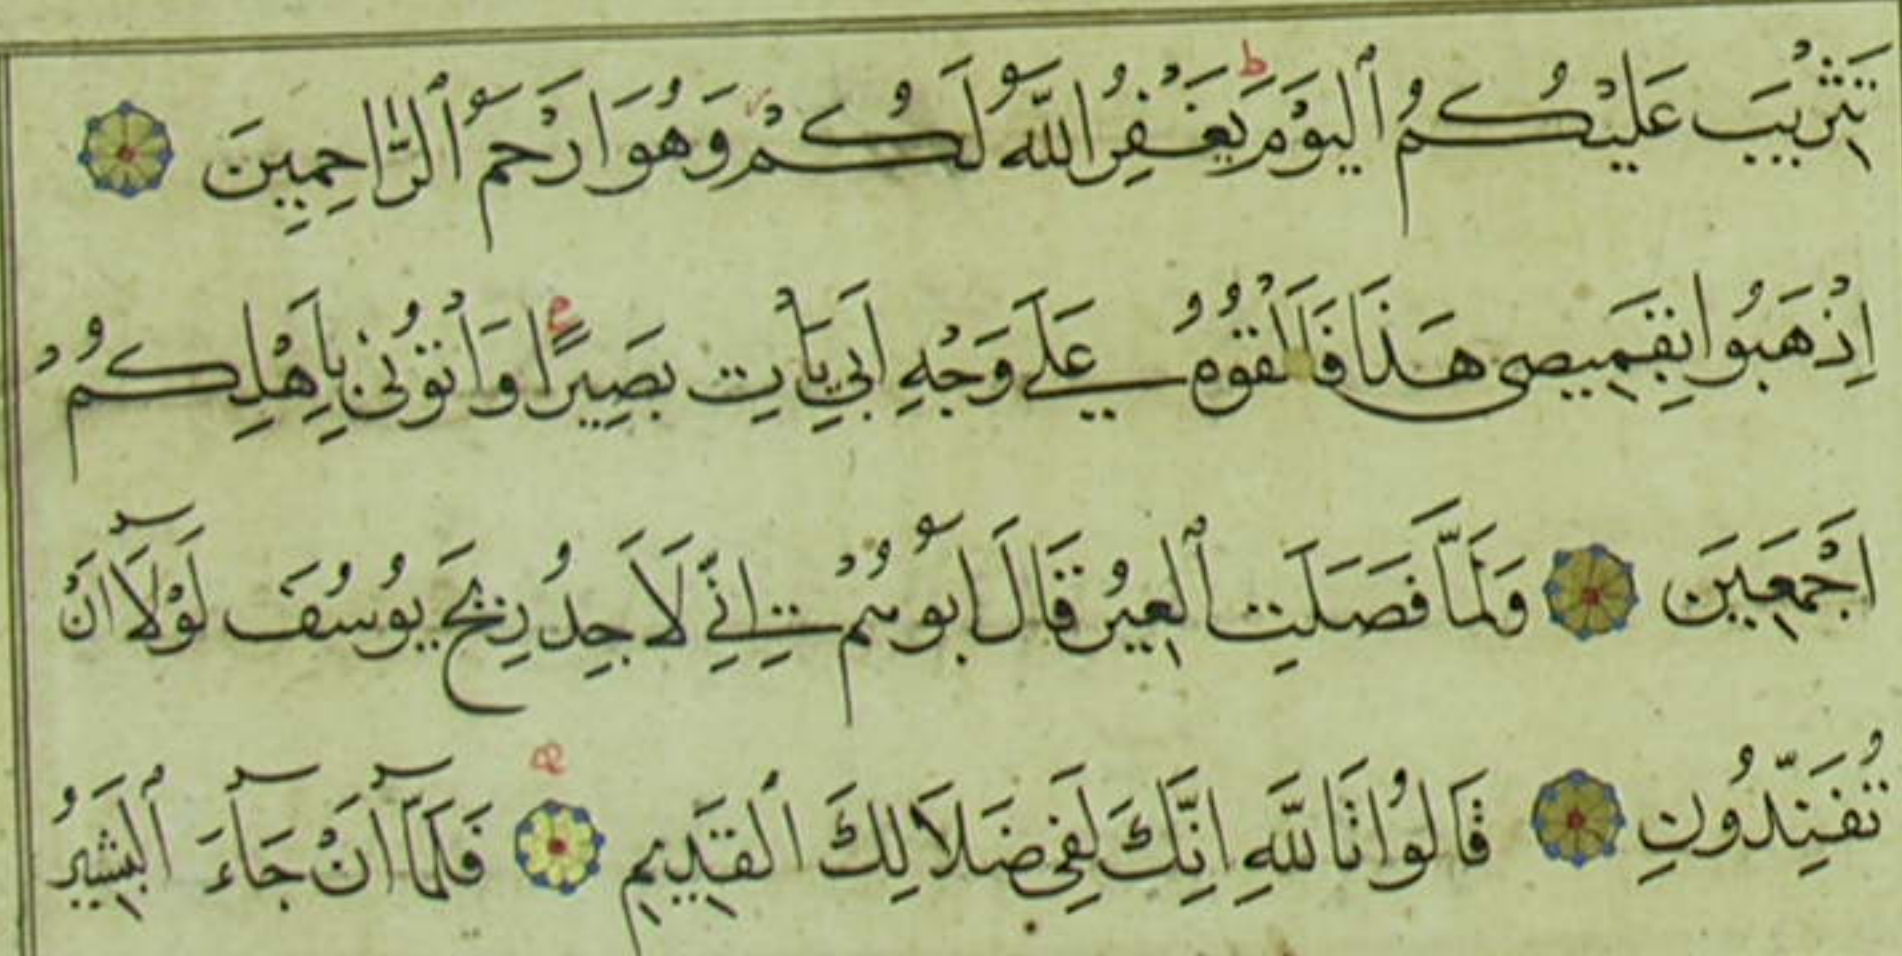 تَثْرِيبَ عَلَيْكُمُ ٱلْيَوْمَ يَغْفِرُ اللّٰهُ لَكُمْ وَهُوَ اَرْحَمُ ٱلرَّاحِمِينَ
اِذْهَبُوا بِقَمِيصِى هَذَا فَاَلْقُوهُ عَلَى وَجْهِ اَبِى يَأْتِ بَصِيرًا وَأْتُونِى بِاَهْلِكُمْ
اَجْمَعِينَ وَلَمَّا فَصَلَتِ ٱلْعِيرُ قَالَ اَبُوهُمْ اِنِّى لَاَجِدُ رِيحَ يُوسُفَ لَوْلَٓا اَنْ
تُفَنِّدُونِ قَالُوا تَاللّٰهِ اِنَّكَ لَفِى ضَلَالِكَ ٱلْقَدِيمِ فَلَمَّٓا اَنْ جَٓاءَ ٱلْبَشِيرُ